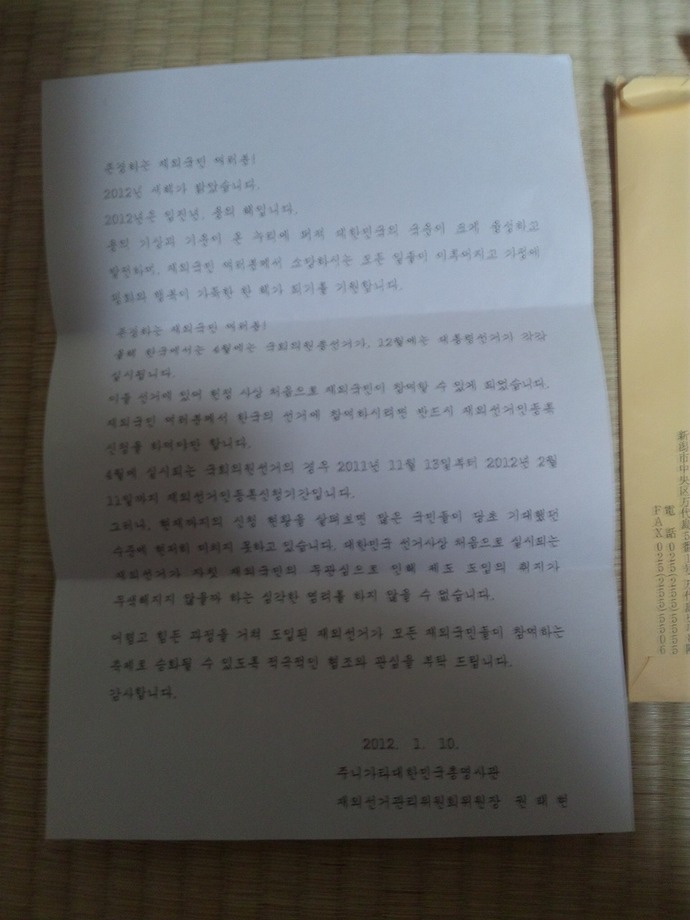 존경하는 재외국민 여러분!
2012년 새해가 밝았습니다.
2012년은 임진년, 용의 해입니다.
용의 기상과 기운이 온 누리에 퍼져 대한민국의 국운이 크게 융성하고
발전하며, 재외국민 여러분께서 소망하시는 모든 일들이 이루어지고 가정에
평화와 행복이 가득한 한 해가 되기를 기원합니다.
존경하는 재외국민 여러분!
올해 한국에서는 4월에는 국회의원총선거가, 12월에는 대통령선거가 각각
실시됩니다.
이들 선거에 있어 헌정 사상 처음으로 재외국민이 참여할 수 있게 되었습니다.
재외국민 여러분께서 한국의 선거에 참여하시려면 반드시 재외선거인등록
신청을 하셔야만 합니다.
4월에 실시되는 국회의원선거의 경우 2011년 11월 13일부터 2012년 2월
11일까지 재외선거인등록신청기간입니다.
그러나, 현재까지의 신청 현황을 살펴보면 많은 국민들이 당초 기대했던
수준에 현저히 미치지 못하고 있습니다. 대한민국 선거사상 처음으로 실시되는
재외선거가 자칫 재외국민의 무관심으로 인해 제도 도입의 취지가
무색해지지 않을까 하는 심각한 염려를 하지 않을 수 없습니다.
어렵고 힘든 과정을 거쳐 도입된 재외선거가 모든 재외국민들이 참여하는
축제로 승화될 수 있도록 적극적인 협조와 관심을 부탁 드립니다.
감사합니다.
2012. 1. 10.
주니가타대한민국총영사관
재외선거관리위원회위원장 권 태 헌
新潟市中央区万代島
電話
FAX